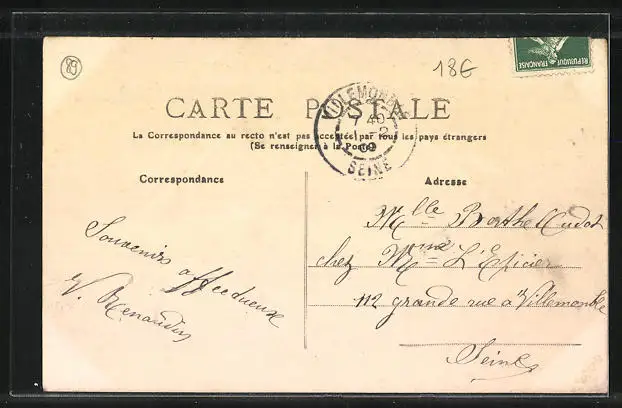 89
18€
REPUBLIQUE FRANÇAISE
VILLEMOMBLE
7 40
-2
09
SEINE
CARTE POSTALE
La Correspondance au recto n'est pas acceptée par tous les pays étrangers
(Se renseigner à la Poste)
Correspondance
Souvenirs affectueux
V. Renaudin
Adresse
Mlle Berthe Oudot
chez Mme L'Epicier
112 grande rue à Villemomble
Seine